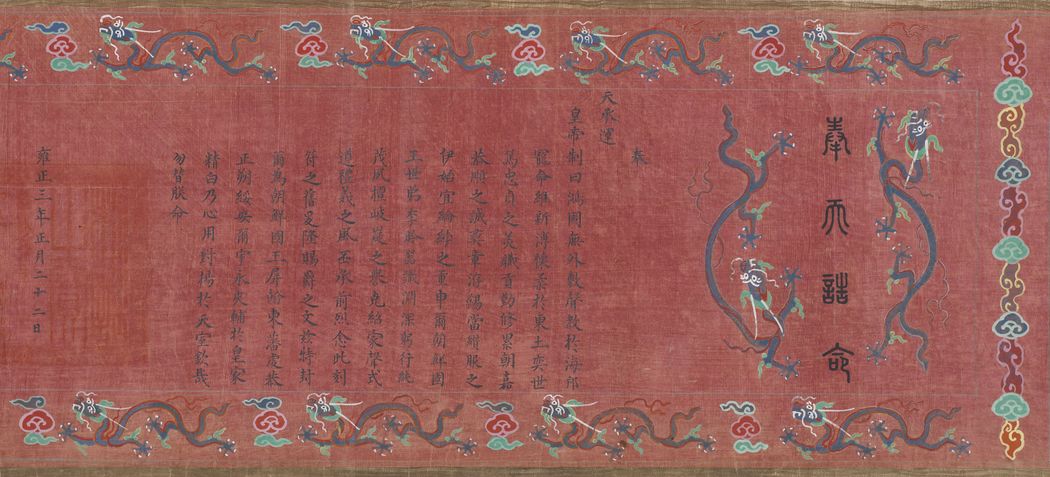 奉天誥命
奉
天承運
皇帝制曰國無外敷聲教於海邦
寵命維新溥懷柔於東土奕世
篤忠貞之美職貢勤修累朝嘉
恭順之誠章洊錫當纘服之
伊始宜綸綍之重申爾朝鮮國
王世弟李昑器識淵深躬行純
茂夙擅岐嶷之譽克紹家聲式
遵禮義之風丕承前烈念此剖
符之舊爰隆賜爵之文茲特封
爾為朝鮮國王屏翰東藩虔恭
正朔綏安爾宇永夾輔於皇家
精白乃心用對揚於天室欽哉
勿替朕命
雍正三年正月二十二日